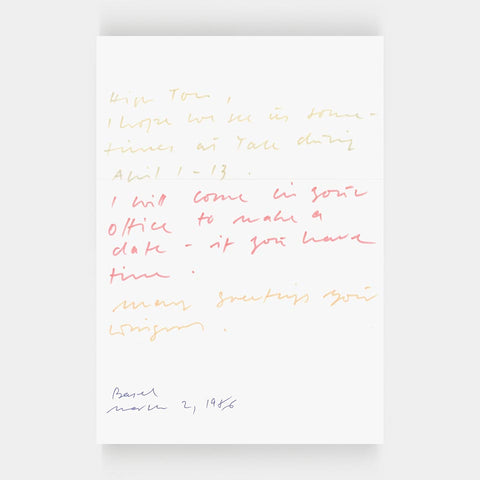 High Tom,
I hope we see us some-
times at Yale during
April 1 - 13.
I will come in your
office to make a
date - if you have
time.
many greetings your
Wolfgang.
Basel
march 2, 1986